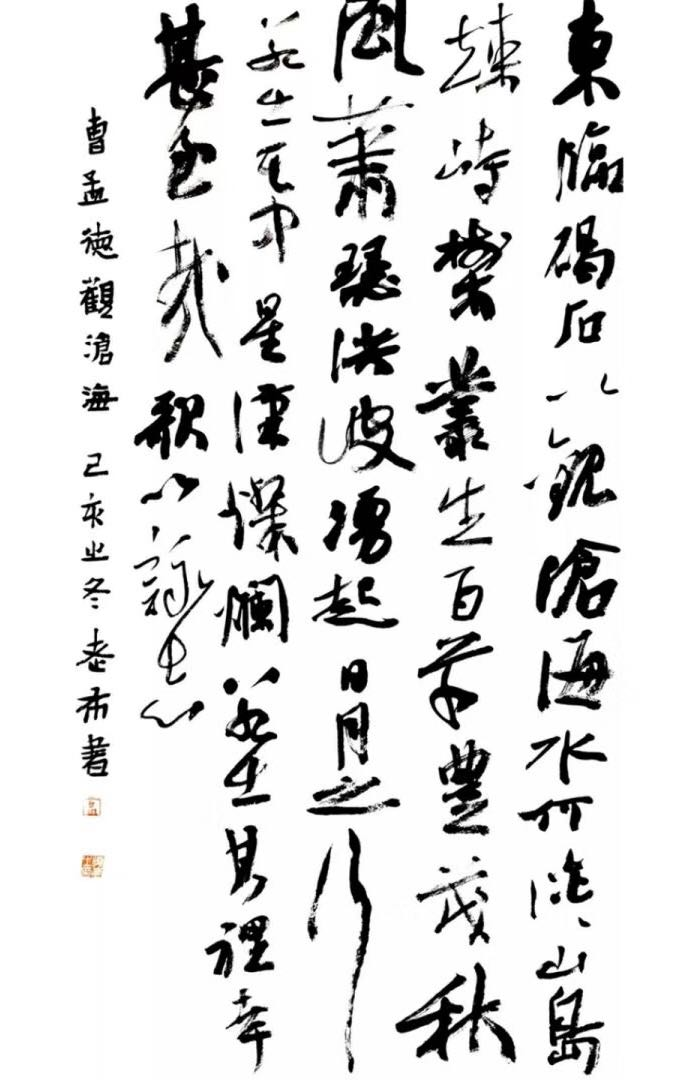 東臨碣石以觀滄海水何澹澹山島
竦峙樹木叢生百草豐茂秋
風蕭瑟洪波湧起日月之行
若出其中星漢燦爛若出其裡幸
甚至哉歌以詠志
曹孟德觀滄海 己亥之冬老布書